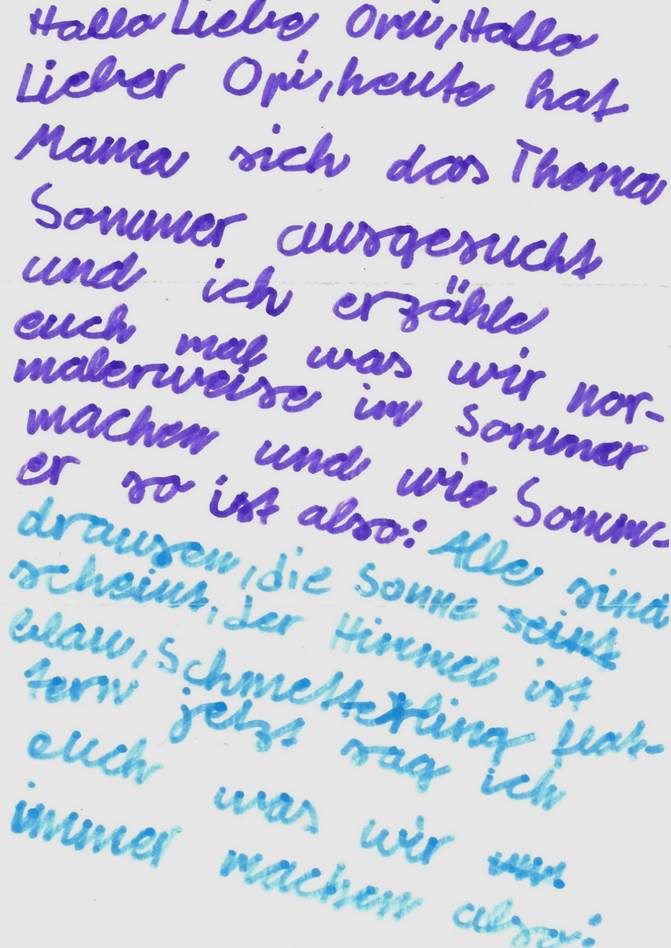 Hallo Liebe Omi, Hallo
Lieber Opi, heute hat
Mama sich das Thema
Sommer ausgesucht
und ich erzähle
euch mal was wir nor-
malerweise im Sommer
machen und wie Somm-
er so ist also: Alle sind
drausen, die Sonne seint
scheint, der Himmel ist
blau, Schmetterling flat-
tern jetzt sag ich
euch was wir
immer machen also: